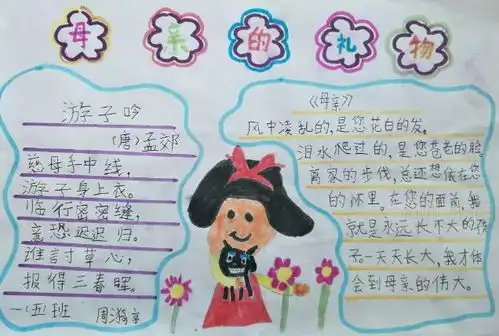 母亲的礼物
游子吟
(唐)孟郊
慈母手中线,
游子身上衣。
临行密密缝,
意恐迟迟归。
谁討寸草心,
报得三春晖。
一(五)班 周漪
《母亲》
风中凌乱的,是您花白的发。
泪水爬过的,是您苍老的脸
离家的步伐,总还想偎在您
的怀里。在您的面前,我
就是永远长不大的孩
子一天天长大,我才体
会到母亲的伟大。